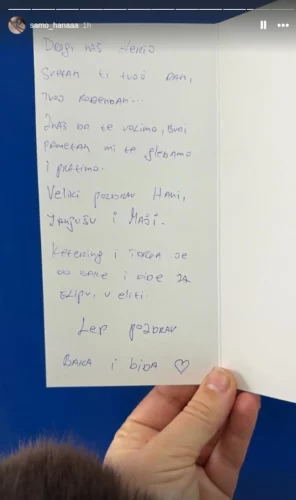 samo_hanaaa 1h
Dragi naš
Srećan ti tvoj dan,
tvoj rođendan...
Znaš da te volimo, budi
pametan mi te gledamo
i pratimo.
Veliki pozdrav Hani,
i Maši.
Ketering i torta je
od bake i dide za
ekipu, u eliti.
Lep pozdrav
Baka i dida ♡